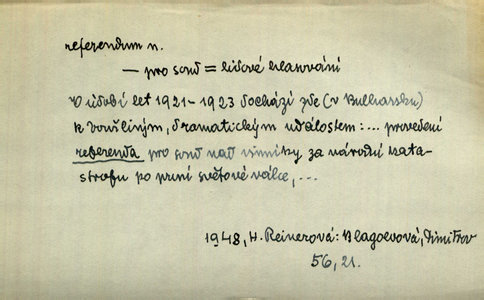 referendum n.
— pro soud = lidové hlasování
V údobí let 1921-1923 dochází zde (v Bulharsku)
k bouřlivým, dramatickým událostem: ... provedení
referenda pro soud nad viníky za národní kata-
strofu po první světové válce, ...
1948, H. Reinerová: Blagoevová, Dimitrov
56, 21.